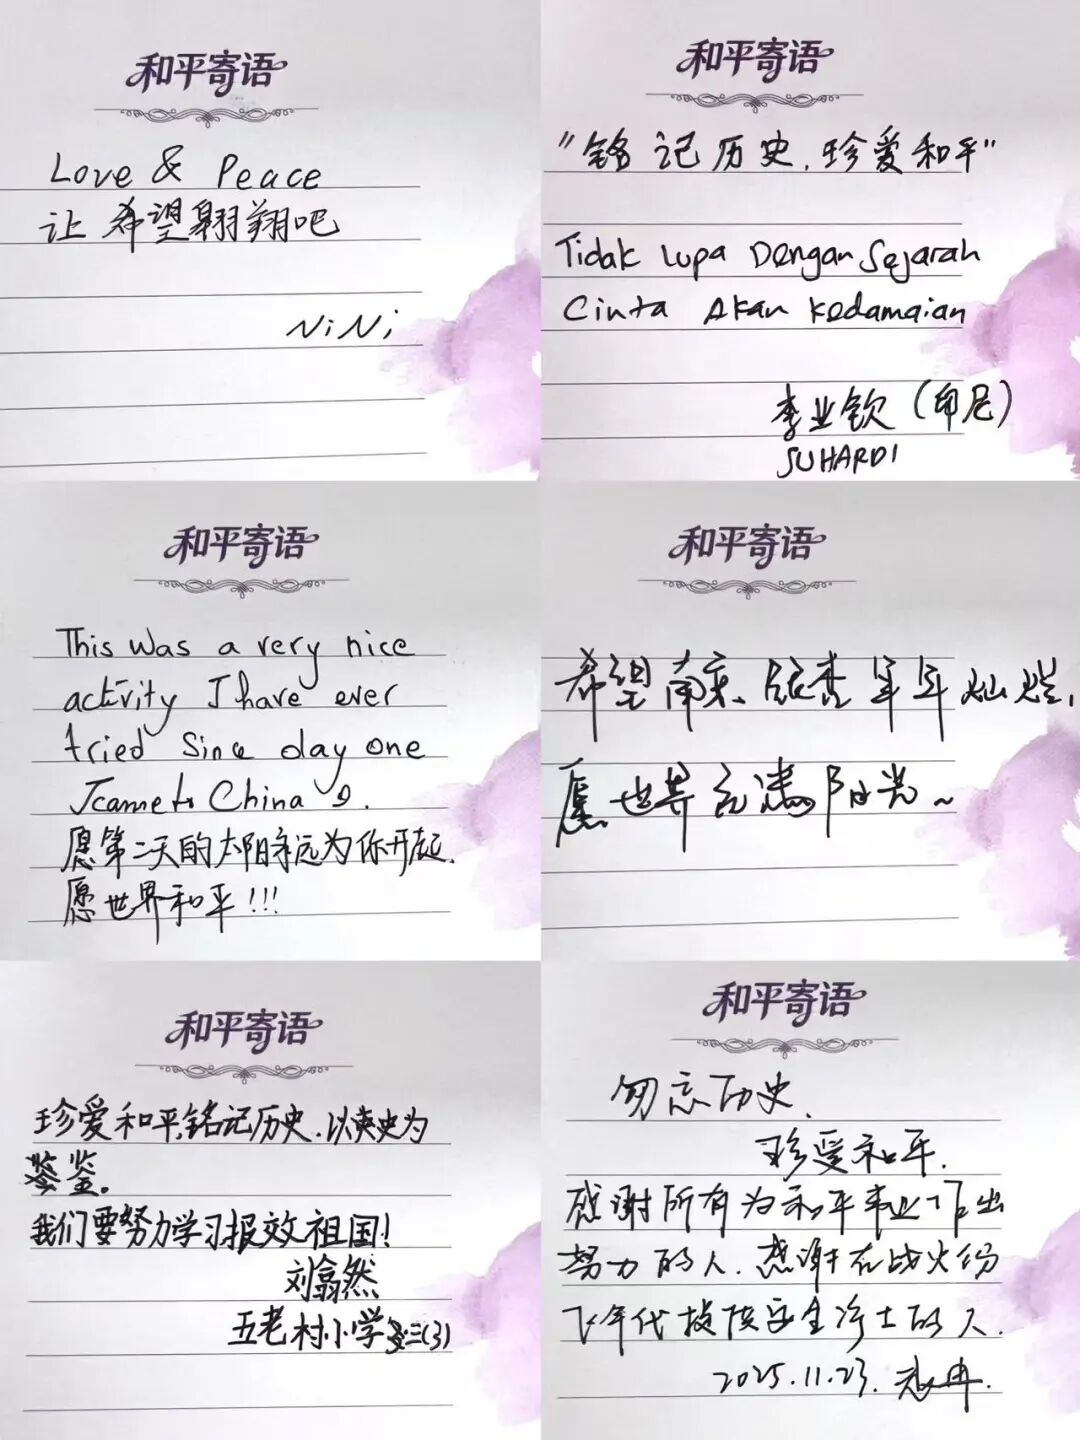 和平寄语
Love & Peace
让希望翱翔吧
NiNi
和平寄语
"铭记历史,珍爱和平"
Tidak Lupa Dengan Sejarah
Cinta Akan Kedamaian
李业钦(印尼)
SUHARDI
和平寄语
This was a very nice
activity I have ever
tried since day one
I came to China
愿第二天的太阳永远为你开起.
愿世界和平!!!
和平寄语
希望南京、年年灿烂,
愿世界充满阳光~
和平寄语
珍爱和平,铭记历史.以史为
鉴。
我们要努力学习报效祖国!
刘翕然
五老村小学三(3)
和平寄语
勿忘历史.
珍爱和平.
感谢所有为和平事业作出
努力的人.感谢在战火纷
飞年代提供安全净土的人.
2025.11.23.